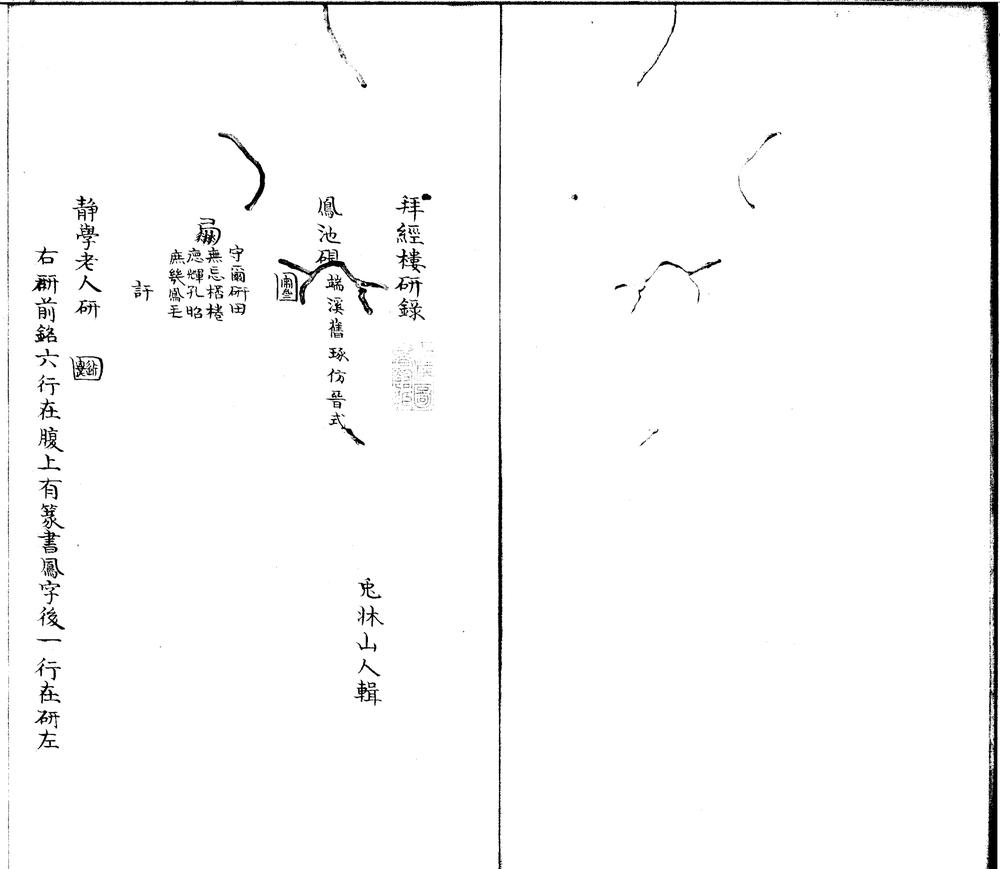 拜經樓研錄
兎牀山人輯
鳳池硯端溪舊琢仿晉式
守爾研田
無忘桮棬
應輝孔昭
庶幾鳳毛
訐
靜學老人研
右研前銘六行在腹上有篆書鳳字後一行在研左